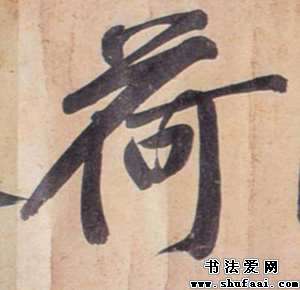 荷
书法爱网
www.shufaai.com